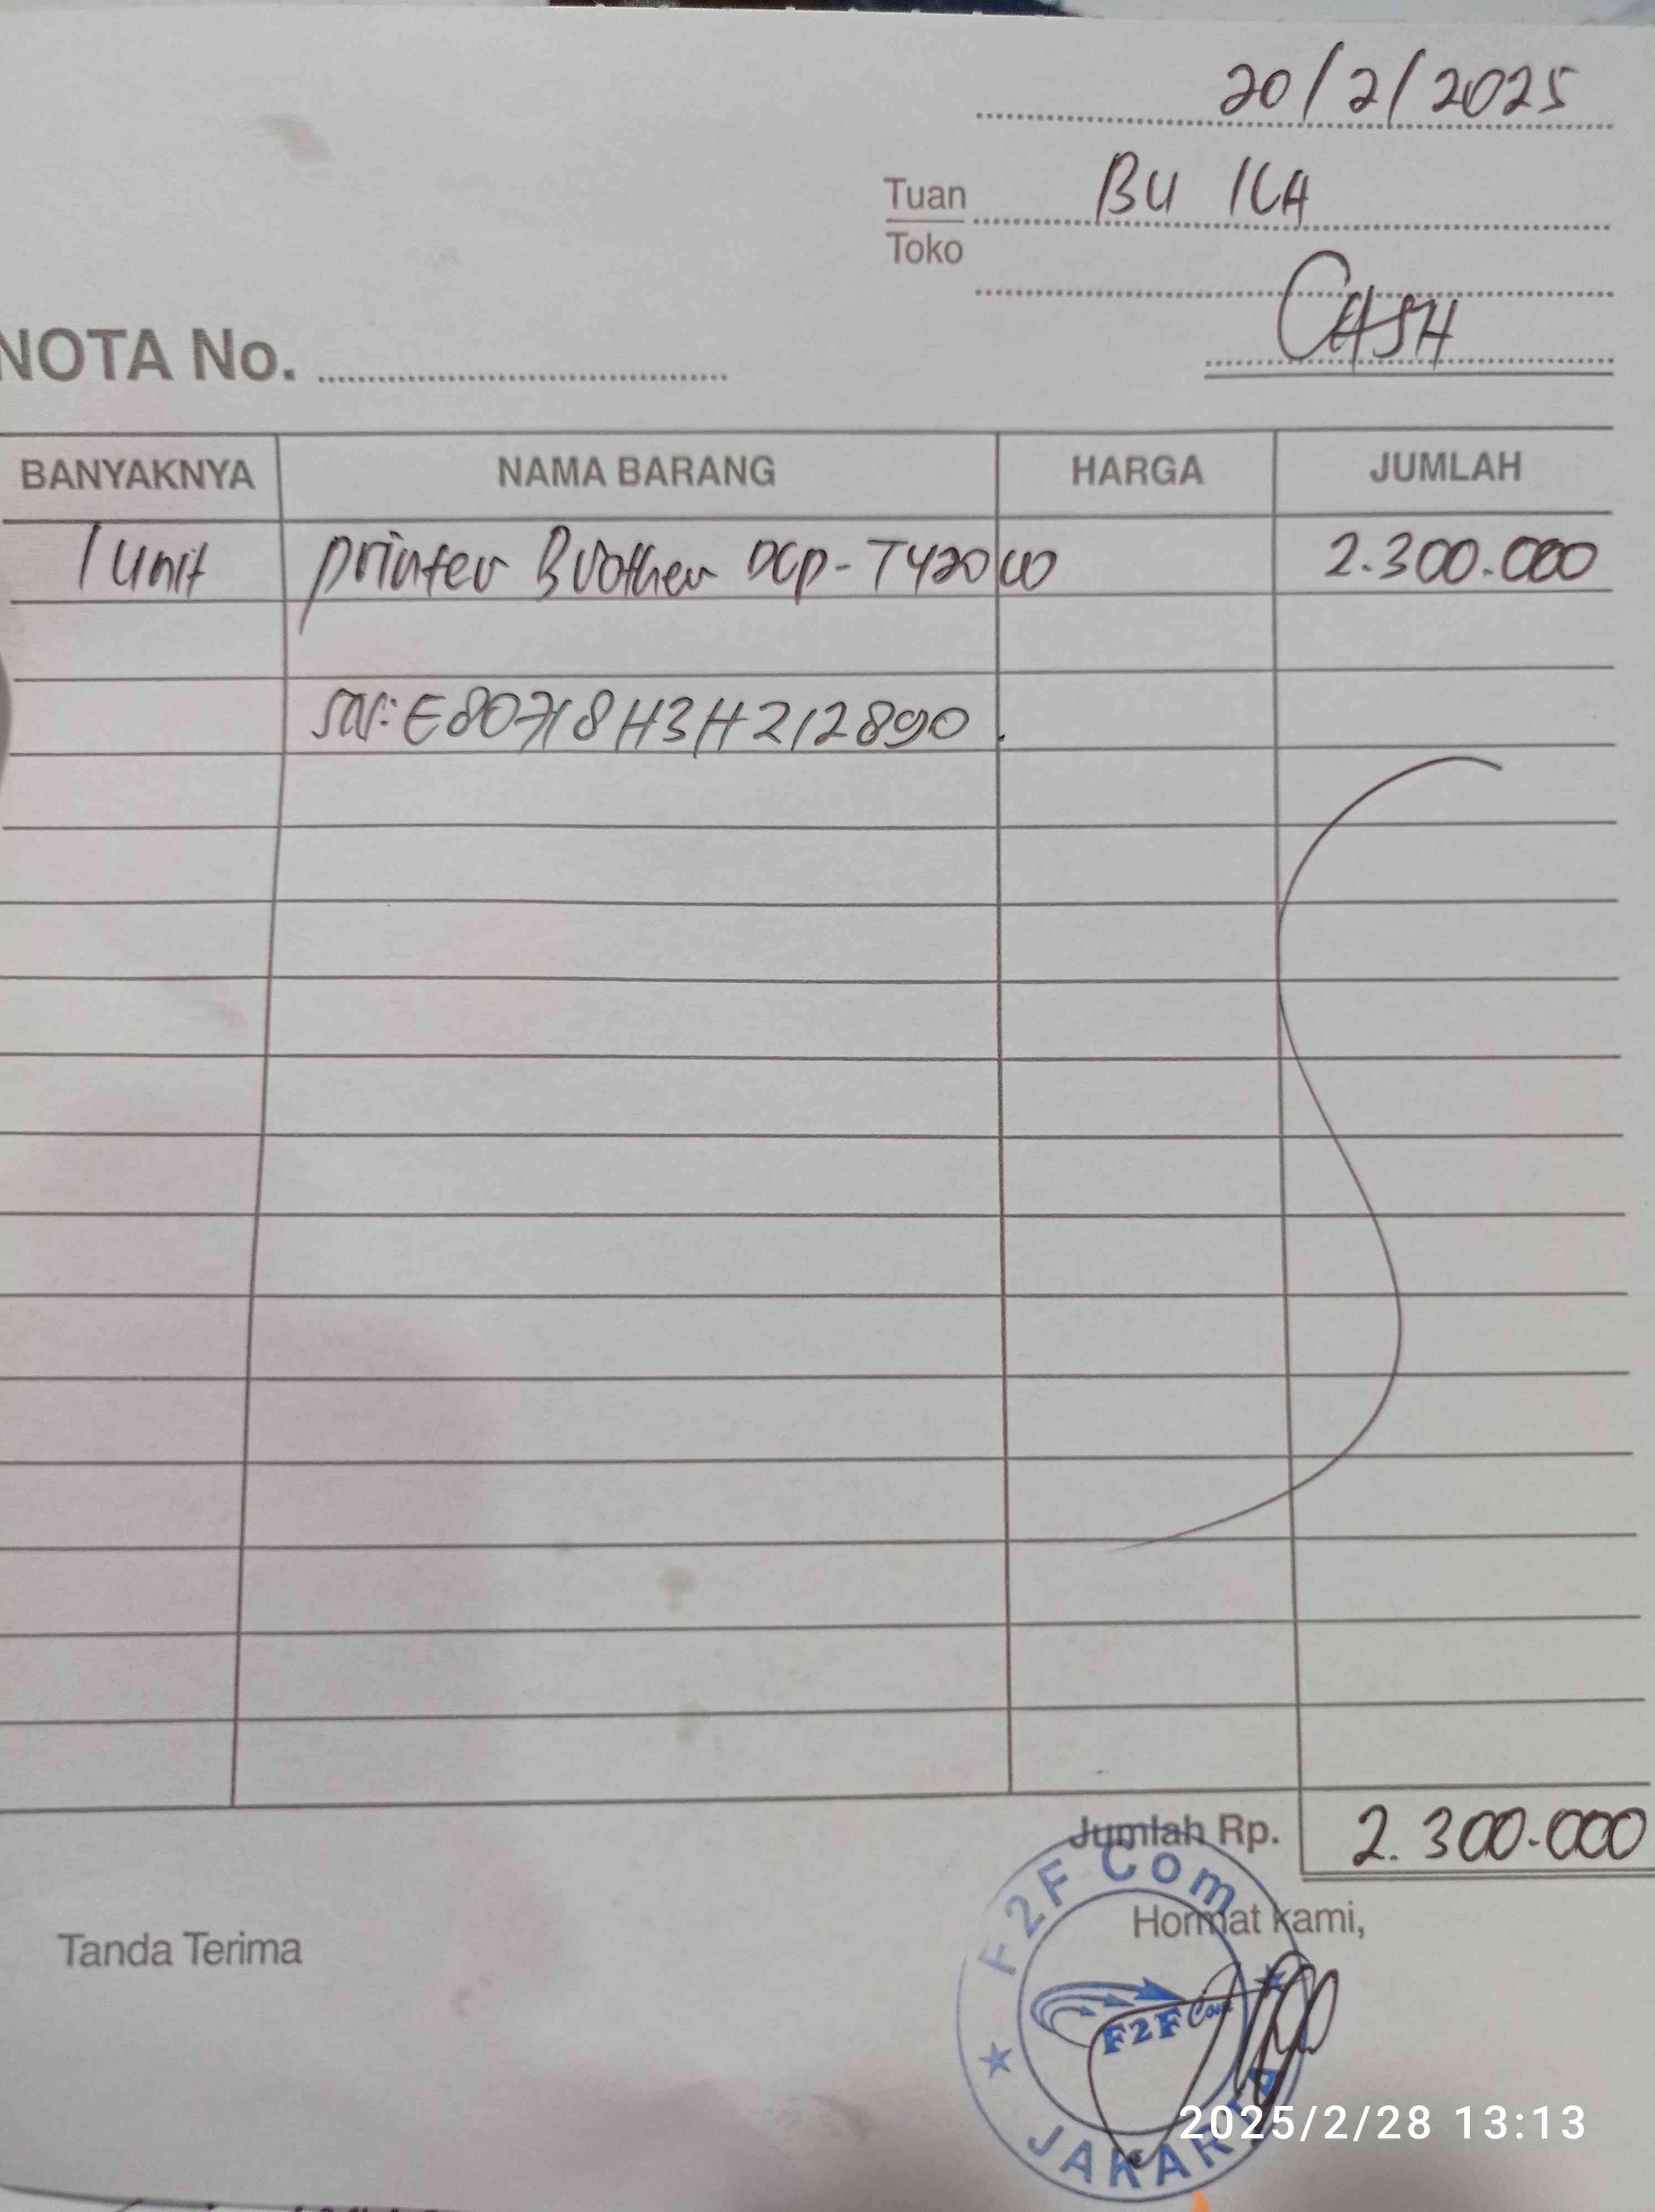 20/2/2025
Tuan BU IKA
Toko
CASH
NOTA No.
BANYAKNYA NAMA BARANG HARGA JUMLAH
1 unit printer Brother DCP-T420W 2.300.000
SN: E80718H3H212890.
Jumlah Rp. 2.300.000
Tanda Terima Hormat kami,
F2F Com
F2F Com
JAKARTA
2025/2/28 13:13